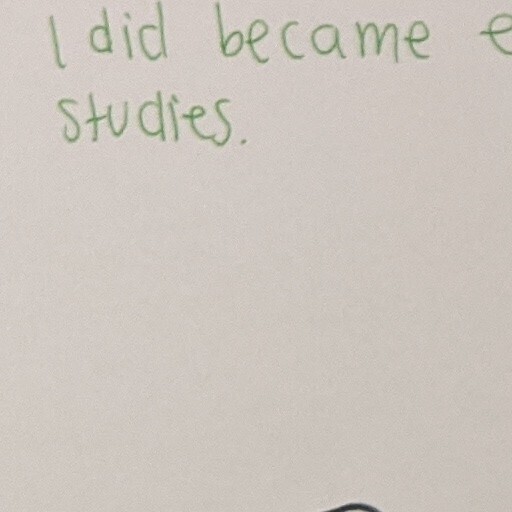 I did became
studies.